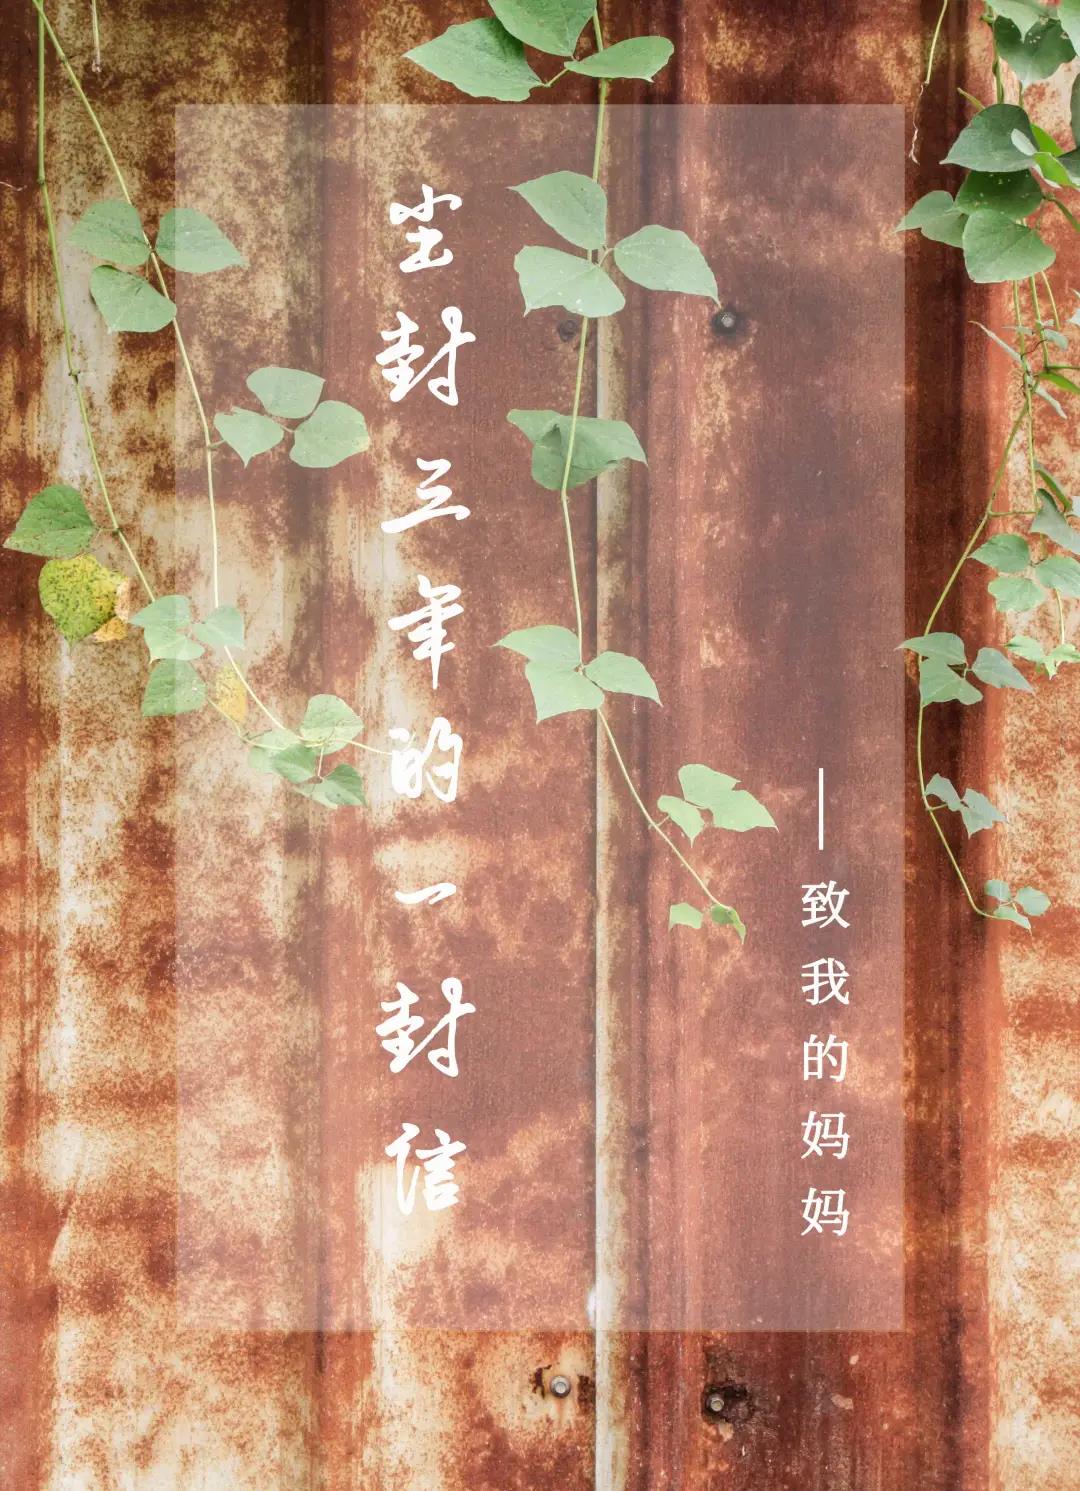 尘封三年的一封信
——致我的妈妈